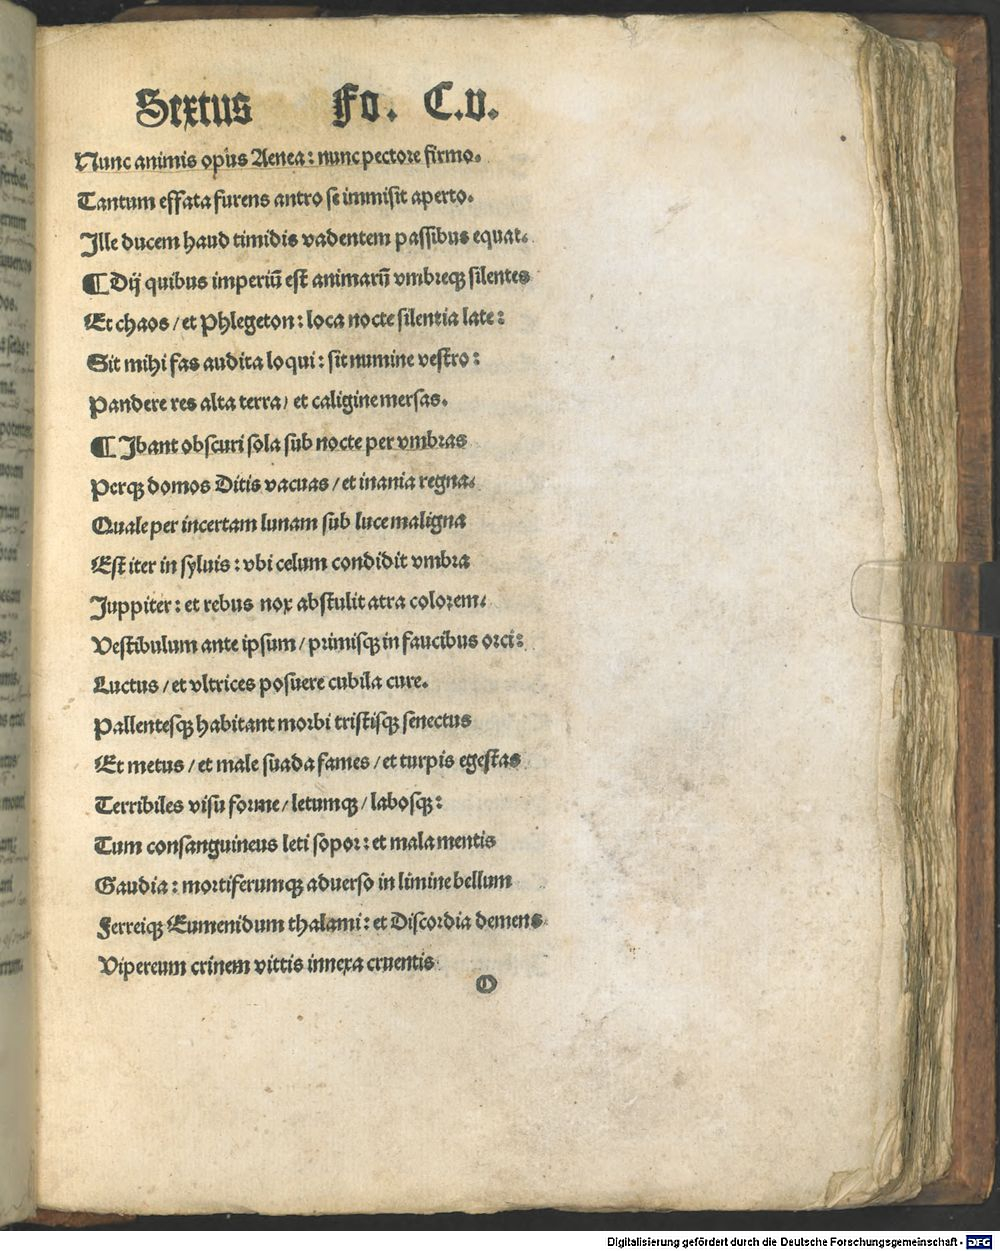 Sextus Fo. C.v.
Nunc animis opus Aenea: nunc pectore firmo.
Tantum effata furens antro se immisit aperto.
Ille ducem haud timidis vadentem passibus equat.
¶ Dij quibus imperiū est animarū vmbreqꝫ silentes
Et chaos / et Phlegeton: loca nocte silentia late:
Sit mihi fas audita loqui: sit numine vestro:
Pandere res alta terra / et caligine mersas.
¶ Ibant obscuri sola sub nocte per vmbras
Perqꝫ domos Ditis vacuas / et inania regna.
Quale per incertam lunam sub luce maligna
Est iter in syluis: vbi celum condidit vmbra
Juppiter: et rebus nox abstulit atra colorem.
Vestibulum ante ipsum / primisqꝫ in faucibus orci:
Luctus / et vltrices posuere cubila cure.
Pallentesqꝫ habitant morbi tristisqꝫ senectus
Et metus / et male suada fames / et turpis egestas
Terribiles visu forme / letumqꝫ / labosqꝫ:
Tum consanguineus leti sopor: et mala mentis
Gaudia: mortiferumqꝫ aduerso in limine bellum
Ferreiqꝫ Eumenidum thalami: et Discordia demens
Vipereum crinem vittis innexa cruentis
O
Digitalisierung gefördert durch die Deutsche Forschungsgemeinschaft - DFG